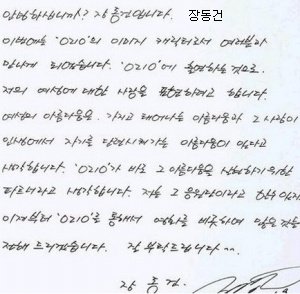 안녕하십니까? 장동건입니다. 장동건
이번에는 '0210'의 이미지 캐릭터로서 여러분과
만나게 되었습니다. '0210'에 출연하는 것으로
저의 여성에 대한 사랑을 표현하려고 합니다.
여성의 아름다움은 가지고 태어나는 아름다움과 그 사람이
인생에서 자기를 단련시켜가는 아름다움이 있다고
생각합니다. '0210'가 바로 그 아름다움을 실현하기 위한
파트너라고 생각합니다. 저는 그 응원단이라고 할수 있지
이제부터 '0210'을 통해서 영화를 비롯하여 많은 것을
전해 드리겠습니다. 잘 부탁드립니다 ^^
장 동 건